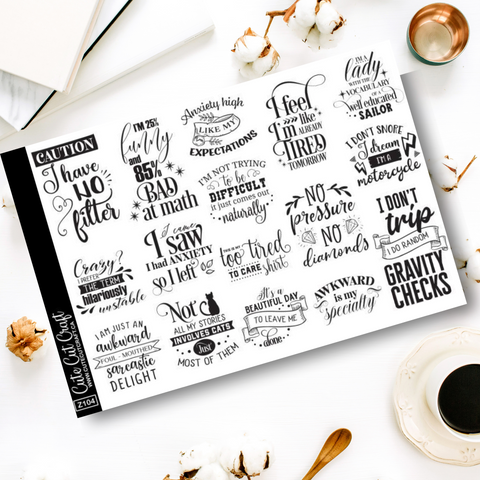 CAUTION
I have
NO
filter
I'M 25%
funny
and
85%
BAD
at math
Anxiety high
LIKE MY
EXPECTATIONS
I feel
I'm like
ALREADY
TIRED
TOMORROW
I'M A
lady
WITH THE
VOCABULARY
OF A
well educated
SAILOR
I'M NOT TRYING
to be
DIFFICULT
it just comes out
naturally
I DON'T SNORE
I dream
I'M A
motorcycle
Crazy?
I PREFER
THE TERM
hilariously
unstable
I came
I saw
I had ANXIETY
So I left
THIS IS MY
too tired
TO CARE shirt
NO
pressure
NO
diamonds
I DON'T
trip
I DO RANDOM
GRAVITY
CHECKS
I AM JUST AN
awkward
FOUL - MOUTHED
sarcastic
DELIGHT
Not
ALL MY STORIES
INVOLVES CATS
Just
MOST OF THEM
It's a
BEAUTIFUL DAY
TO LEAVE ME
alone
AWKWARD
is my
specialty
Cute Cut Craft
WWW.CUTECUTCRAFT.CA
Z104